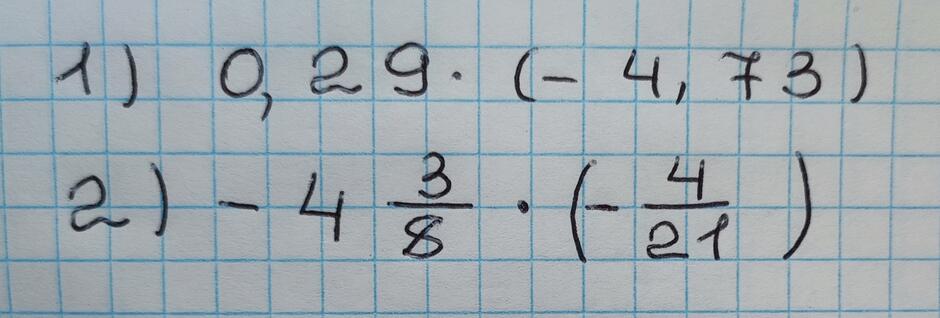 1) 0,29 · (- 4,73)
2) - 4 3/8 · (- 4/21)